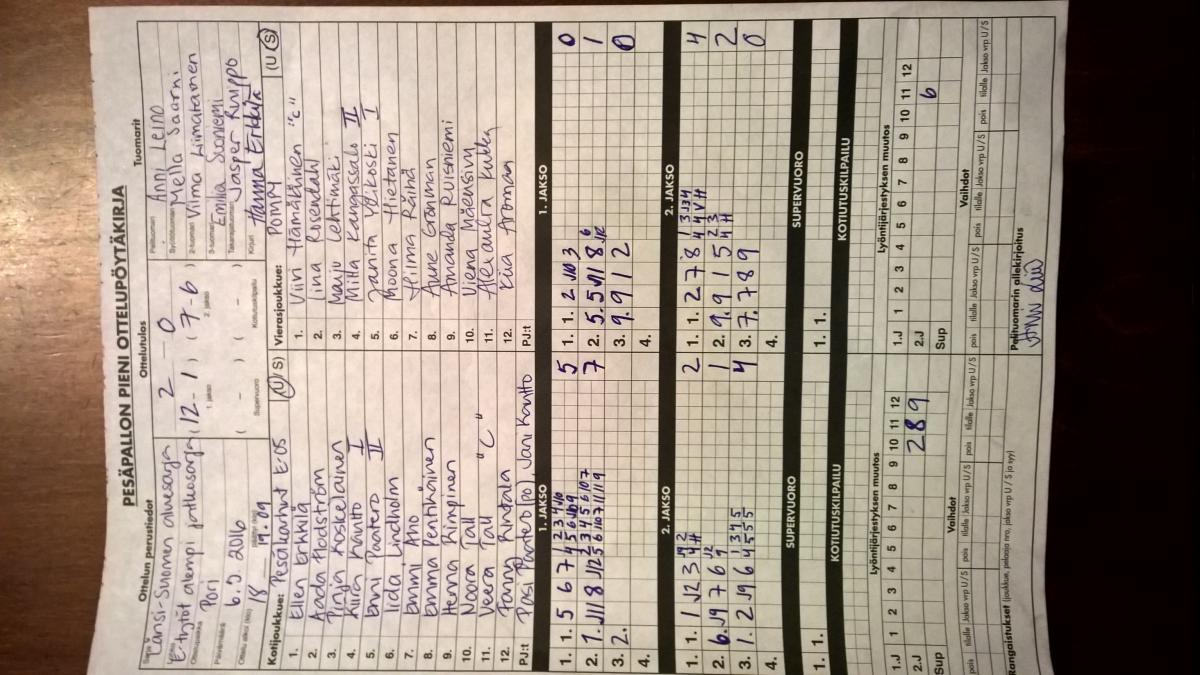 PESÄPALLON PIENI OTTELUPÖYTÄKIRJA
Ottelun perustiedot
Ottelutulos
Tuomarit
Sarja Länsi-Suomen aluesarja
E-tytöt alempi jatkosarja
Ottelupaikka Pori
Päivämäärä 6.9. 2016
Ottelu alkoi (klo) 18
päättyi (klo) 19.19
2 - 0
(12 - 1) (7 - 6)
1. jakso 2. jakso
( - ) ( - )
Supervuoro Kotiutuskilpailu
Pelituomari Anni Leino
Syöttötuomari Mella Saarni
2-tuomari Vilma Liimatainen
3-tuomari Emilia Suoniemi
Takarajatuomari Jasper Ruippo
Kirjuri Hanna Erkkilä
Kotijoukkue: Pesäkarhut E-05 (U/S)
1. Ellen Erkkilä
2. Aada Hödström
3. Pinja Koskelainen
4. Kiira Kautto I
5. Enni Paatero II
6. Iida Lindholm
7. Emmi Aho
8. Emma Penttihäinen
9. Henna Rimpinen
10. Noora Tall
11. Veera Tall "C"
12. Fanny Rintala
PJ:t Pasi Paatero (PO), Jani Kautto
Vierasjoukkue: PomPy (U/S)
1. Viivi Hämäläinen "C"
2. Iina Rosendahl
3. Maiju Lehtimäki
4. Milla Kangassalo II
5. Janita Ylikoski I
6. Noona Hietanen
7. Hilma Räihä
8. Aune Grönman
9. Amanda Ruisniemi
10. Viena Mäensivu
11. Aleksandra Kukka
12. Kiia Aroman
PJ:t
1. JAKSO
1. 1. 5 6 7 5
2. 7. 11 8 12 7
3. 2.
4.
1. JAKSO
1. 1. 2 10 3 0
2. 5. 5 11 8 1
3. 9. 9 1 2 0
4.
2. JAKSO
1. 1. 1 12 3 2
2. 6. 19 7 6 1
3. 1. 2 19 6 4
4.
2. JAKSO
1. 1. 2 7 8 4
2. 9. 9 1 5 2
3. 7. 7 8 9 0
4.
SUPERVUORO
1. 1.
SUPERVUORO
1. 1.
KOTIUTUSKILPAILU
KOTIUTUSKILPAILU
Lyöntijärjestyksen muutos
1.J 1 2 3 4 5 6 7 8 9 10 11 12
2.J 2 8 9
Sup
Lyöntijärjestyksen muutos
1.J 1 2 3 4 5 6 7 8 9 10 11 12
2.J 6
Sup
Vaihdot
pois tilalle Jakso vrp U/S pois tilalle Jakso vrp U/S pois tilalle Jakso vrp U/S
Vaihdot
pois tilalle Jakso vrp U/S pois tilalle Jakso vrp U/S pois tilalle Jakso vrp U/S
Rangaistukset (joukkue, pelaaja nro, jakso vrp, U/S ja syy)
Pelituomarin allekirjoitus